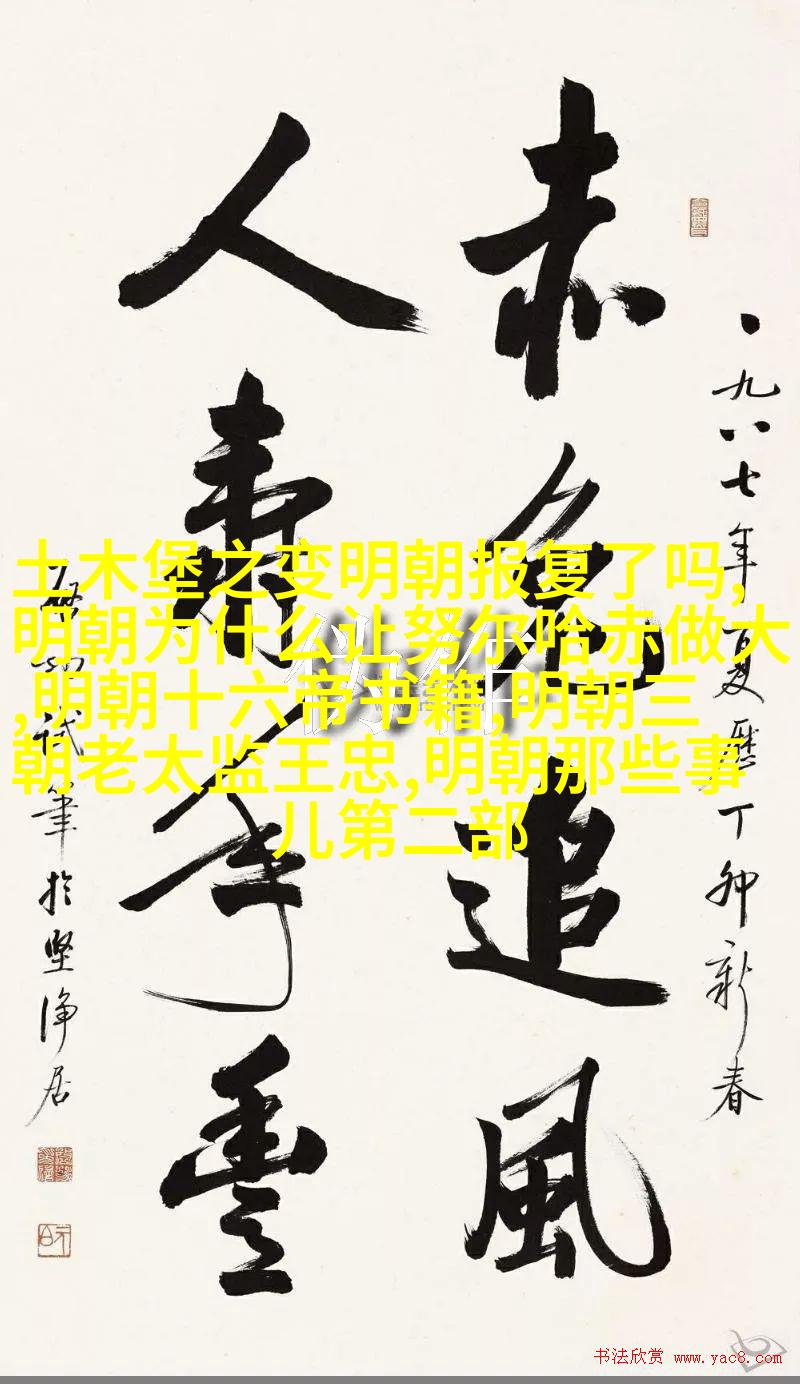 一九八七年夏曆丁卯新春
赤兔追風
人壽年豐
啟功試筆於堅淨居
土木堡之变明朝报复了吗,
明朝为什么让努尔哈赤做大
,明朝十六帝书籍,明朝三
朝老太监王忠,明朝那些事
儿第二部
书法欣赏 www.yac8.com